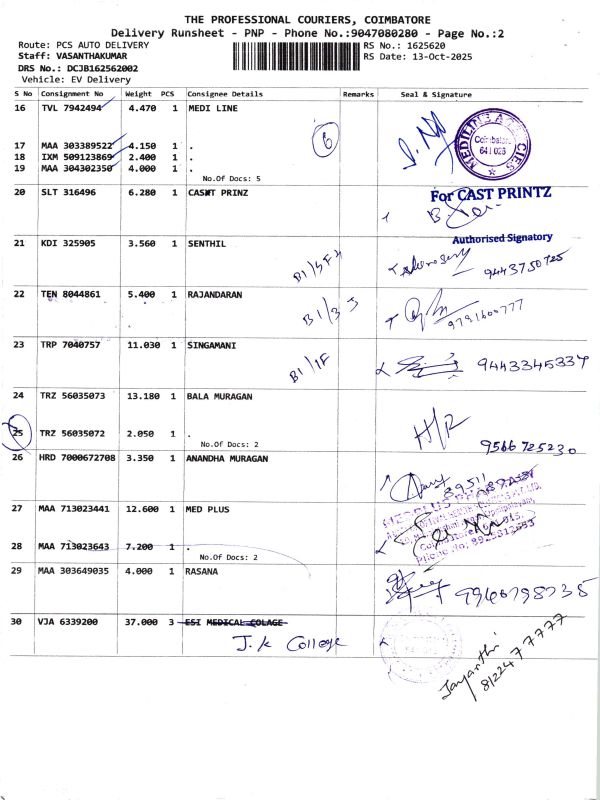 THE PROFESSIONAL COURIERS, COIMBATORE
Delivery Runsheet - PNP - Phone No.:9047080280 - Page No.:2
Route: PCS AUTO DELIVERY
RS No.: 1625620
Staff: VASANTHAKUMAR
RS Date: 13-Oct-2025
DRS No.: DCJB162562002
Vehicle: EV Delivery
S No Consignment No Weight PCS Consignee Details Remarks Seal & Signature
16 TVL 7942494 4.470 1 MEDI LINE
6
MEDILINE AGENCIES
Coimbatore
17 MAA 303389522 4.150 1 .
18 IXM 509123869 2.400 1 .
19 MAA 304302350 4.000 1 .
No.Of Docs: 5
20 SLT 316496 6.280 1 CAST PRINZ
For CAST PRINTZ
Authorised Signatory
21 KDI 325905 3.560 1 SENTHIL
9443750725
22 TEN 8044861 5.400 1 RAJANDARAN
B1/3J
9791600777
23 TRP 7040757 11.030 1 SINGAMANI
B1/1F
9443345337
24 TRZ 56035073 13.180 1 BALA MURAGAN
H/R
25 TRZ 56035072 2.050 1 .
9566725230
No.Of Docs: 2
26 HRD 7000672708 3.350 1 ANANDHA MURAGAN
89511
27 MAA 713023441 12.600 1 MED PLUS
28 MAA 713023643 7.200 1 .
No.Of Docs: 2
29 MAA 303649035 4.000 1 RASANA
30 VJA 6339200 37.000 3 ESI MEDICAL COLAGE
J.K College
Jayanthi
8122477777